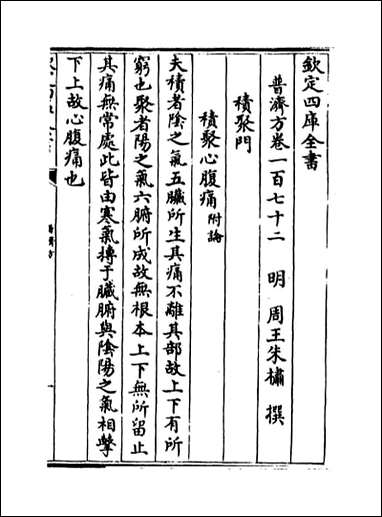 欽定四庫全書
普濟方卷一百七十二　明　周王朱橚　撰
積聚門
積聚心腹痛附論
夫積者陰之氣五臟所生其痛不離其部故上下有所
窮也聚者陽之氣六腑所成故無根本上下無所留止
其痛無常處此皆由寒氣搏于臟腑與陰陽之氣相擊
下上故心腹痛也